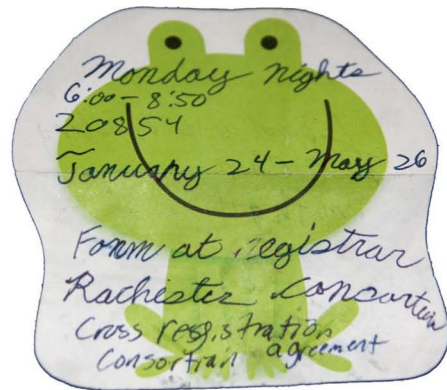 Monday nights
6:00 - 8:50
20854
~
January 24 - May 26
Form at registrar
Rachester Consortium
Cross registration
Consortian agreement